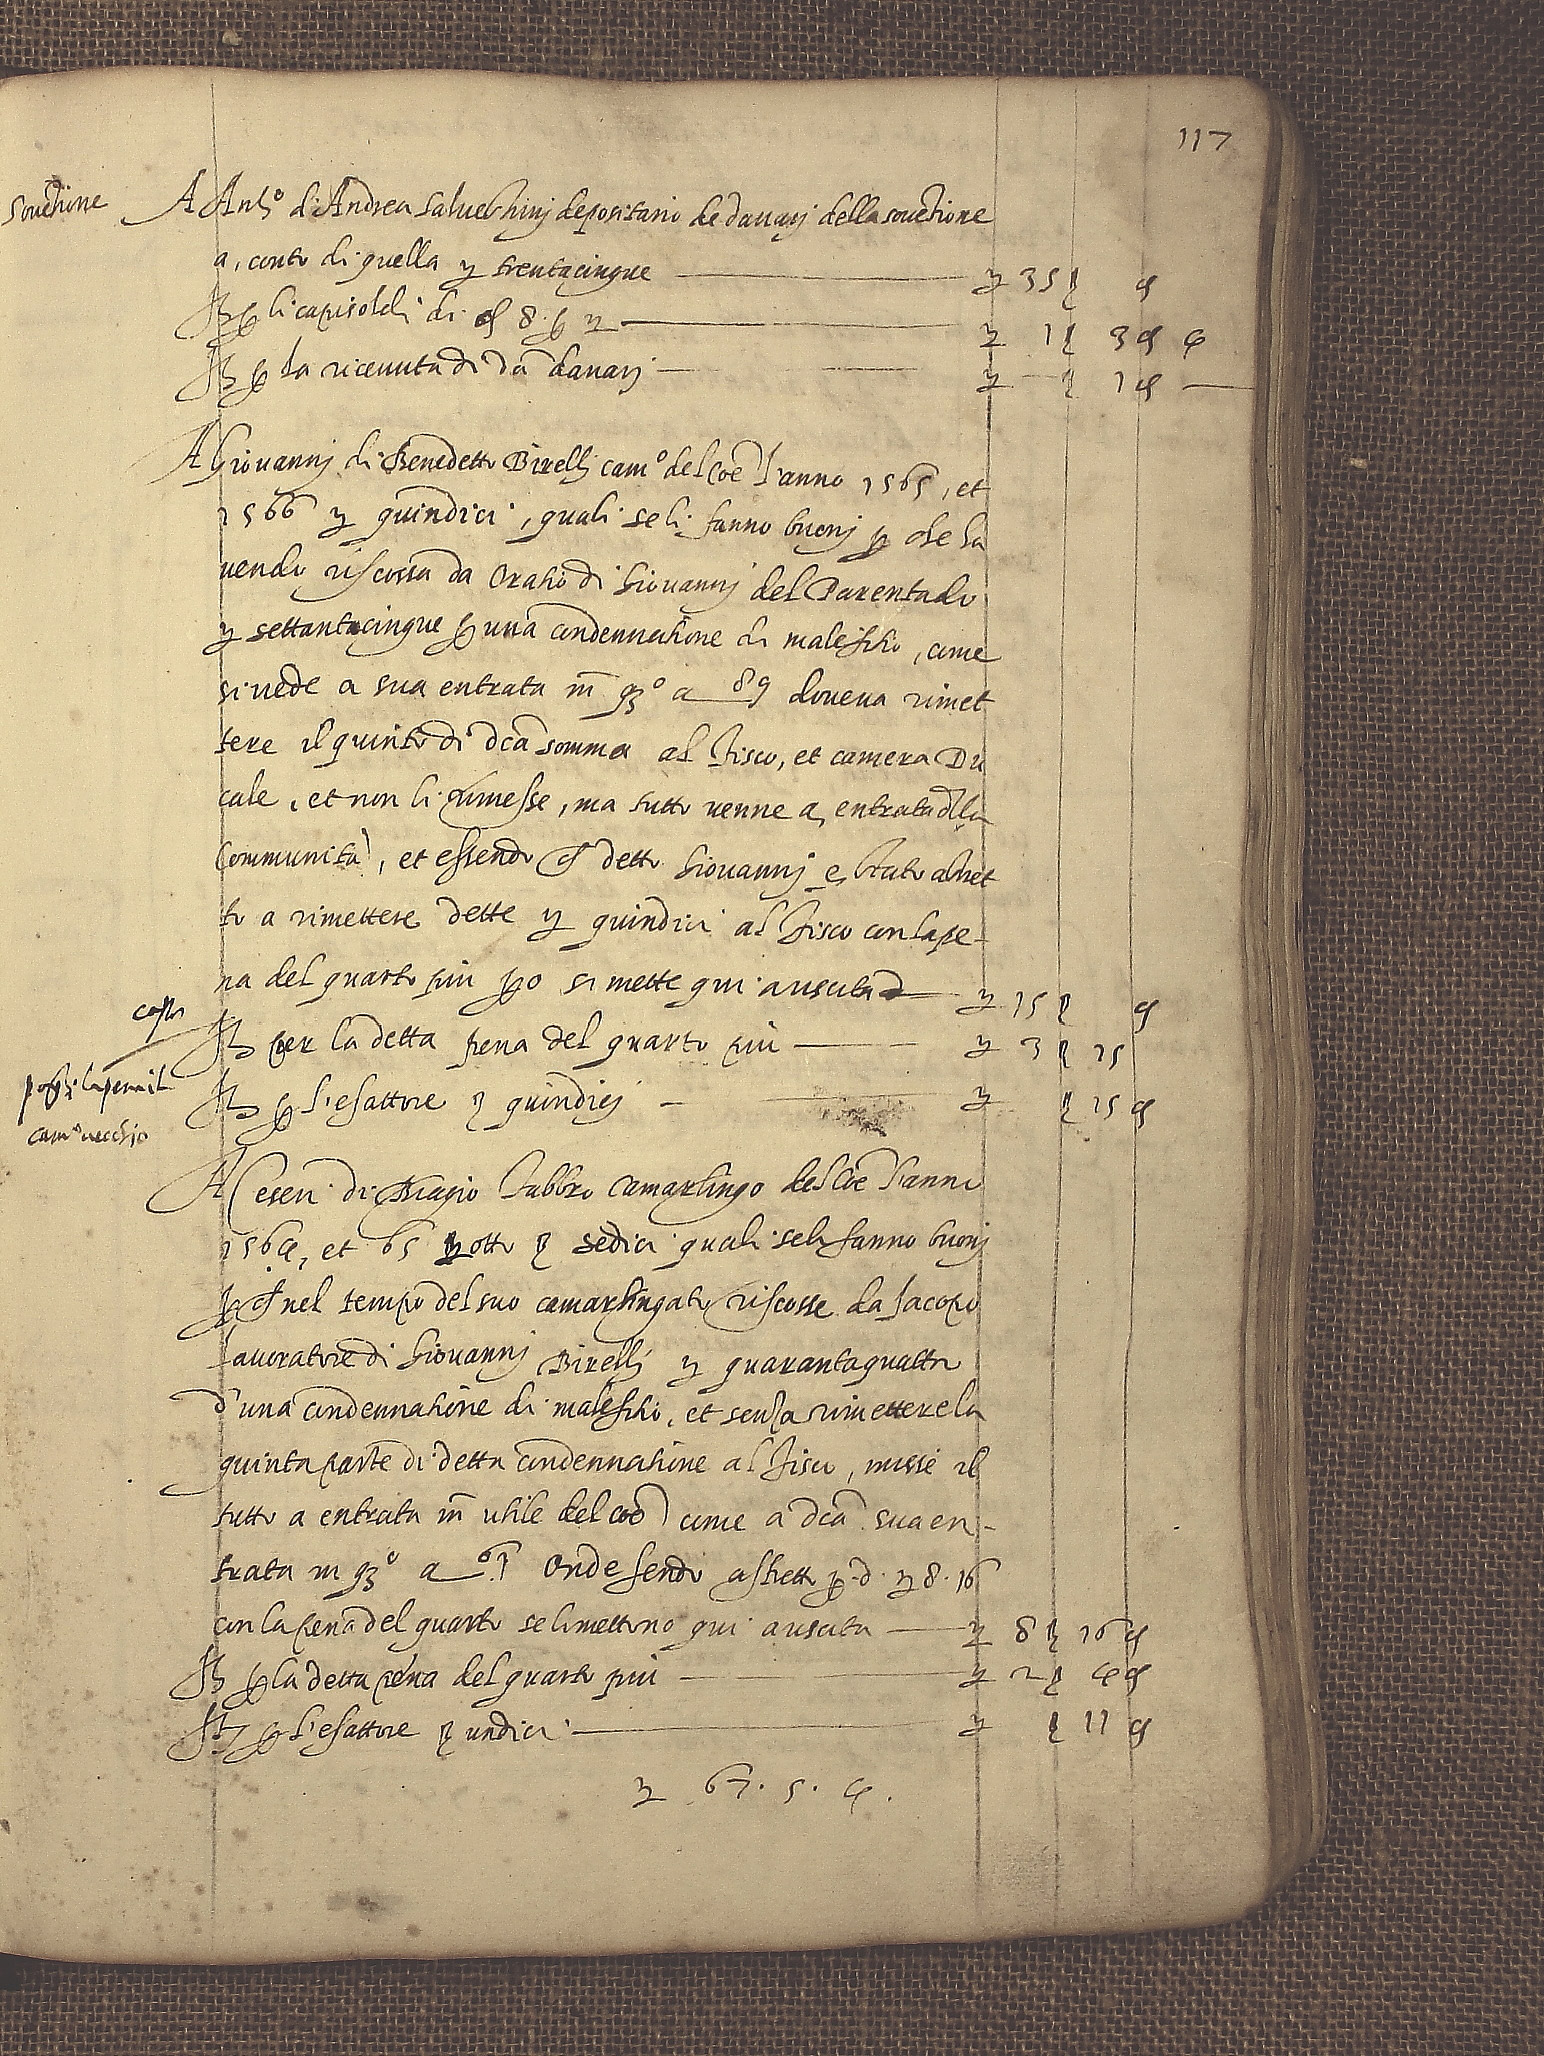 117
Souētione
A Antᵒ di Andrea Saluethinj depositario de danarj della souētione
a, conto di quella ɣ trentacinque ɣ 35 ꝭ ₰
E ꝑ li capisoldi di 8 ꝑ ɣ ɣ 1 ꝭ 3 ₰ 4
E ꝑ la riceuuta di dā danarj ɣ ꝭ 1 ₰ —
A Giouannj di Benedetto Birellj camᵒ del Coē l'anno 1565, et
1566 ɣ quindici, quali se li fanno buonj ꝑ che ha
uendo riscossa da Oratio di Giouannj del Parentado
ɣ settantacinque ꝑ una condennatione di malefitio, come
si uede a sua entrata in qᵒ a 89 doueua rimet
tere il quinto di dcā somma al Fisco, et camera Du
cale, et non li rimesse, ma tutto uenne a, entrata dlla
Communità, et essendo detto Giouannj e, stato astret
to a rimettere dette ɣ quindici al Fisco con la pe-
na del quarto piu ꝑo si mette qui a uscita ɣ 15 ꝭ ₰
E per la detta pena del quarto piu ɣ 3 ꝭ 15
E ꝑ l'esattore ꝭ quindicj ɣ ꝭ 15 ₰
la pena il
camᵒ uecchio
A Ceseri di Biagio Fabbro camarlingo del Coē l'anno
1564, et 65 ɣ otto ꝭ sedici quali seli fanno buonj
ꝑ nel tempo del suo camarlingato riscosse da Jacopo
lauoratore di Giouannj Birellj ɣ quarantaquattro
d'una condennatione di malefitio, et senza rimettere la
quinta parte di detta condennatione al Fisco, misse il
tutto a entrata in utile del coē come a dcā sua en-
trata in qᵒ a 61 Onde sendo astretto ꝑ d. ɣ 8.16
con la pena del quarto se li mettono qui a uscita ɣ 8 ꝭ 16 ₰
E ꝑ la detta pena del quarto piu ɣ 2 ꝭ 4 ₰
E ꝑ l'esattore ꝭ undici ɣ ꝭ 11 ₰
ɣ 67. 5. 4.